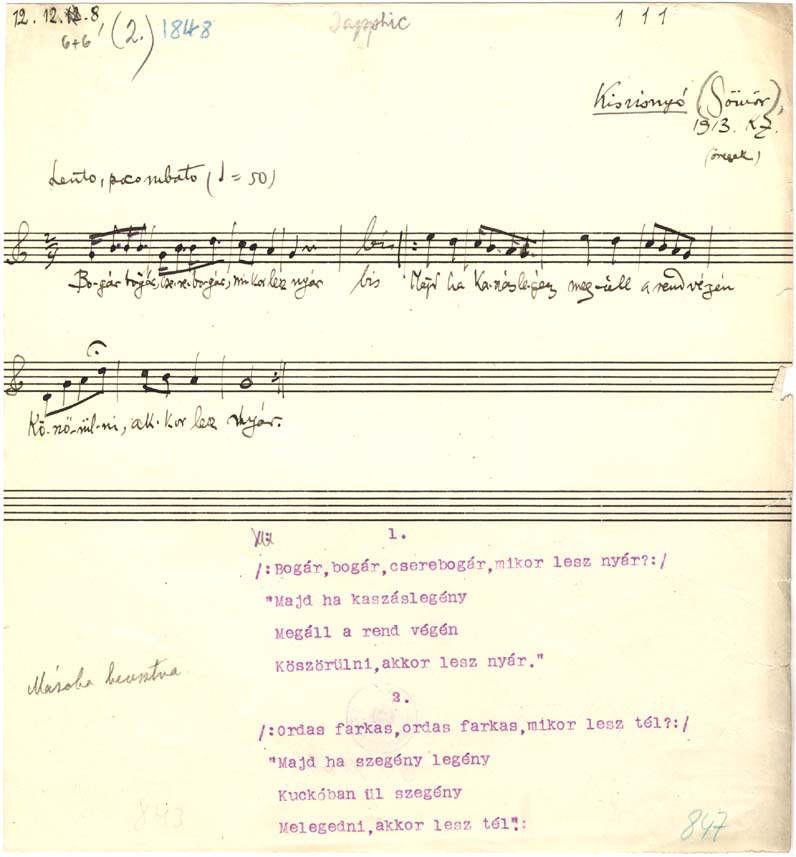 12. 12. 12. 8
6+6
(2.)
1848
Sapphic
1 1 1
Kisvisnyó (Gömör),
1913. KZ.
(öregek)
Lento, (♩ = 50)
Bo-gár bogár, cse-re-bo-gár, mi-kor lesz nyár bis Majd ha ka-szás le-gény meg-áll a rend végén
bis
Kö-szö-rül-ni, ak-kor lesz nyár.
1.
/:Bogár,bogár,cserebogár,mikor lesz nyár?:/
"Majd ha kaszáslegény
Megáll a rend végén
Köszörülni,akkor lesz nyár."
Másolva beosztva
2.
/:Ordas farkas,ordas farkas,mikor lesz tél?:/
"Majd ha szegény legény
Kuckóban ül szegény
Melegedni,akkor lesz tél".:
843
847